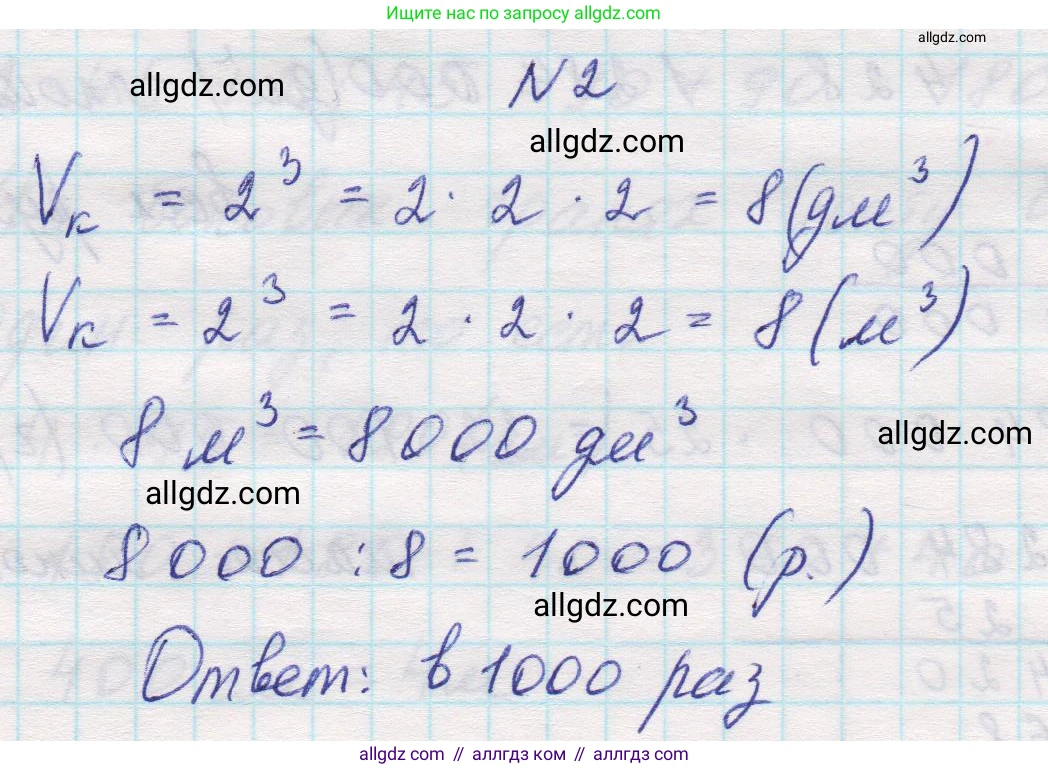 Ищите нас по запросу allgdz.com
allgdz.com
allgdz.com
N 2
allgdz.com
Vк = 2³ = 2 · 2 · 2 = 8 (дм³)
Vк = 2³ = 2 · 2 · 2 = 8 (м³)
8 м³ = 8000 дм³
allgdz.com
allgdz.com
8000 : 8 = 1000 (р.)
allgdz.com
Ответ: в 1000 раз
allgdz com // аллгдз ком // allgdz com